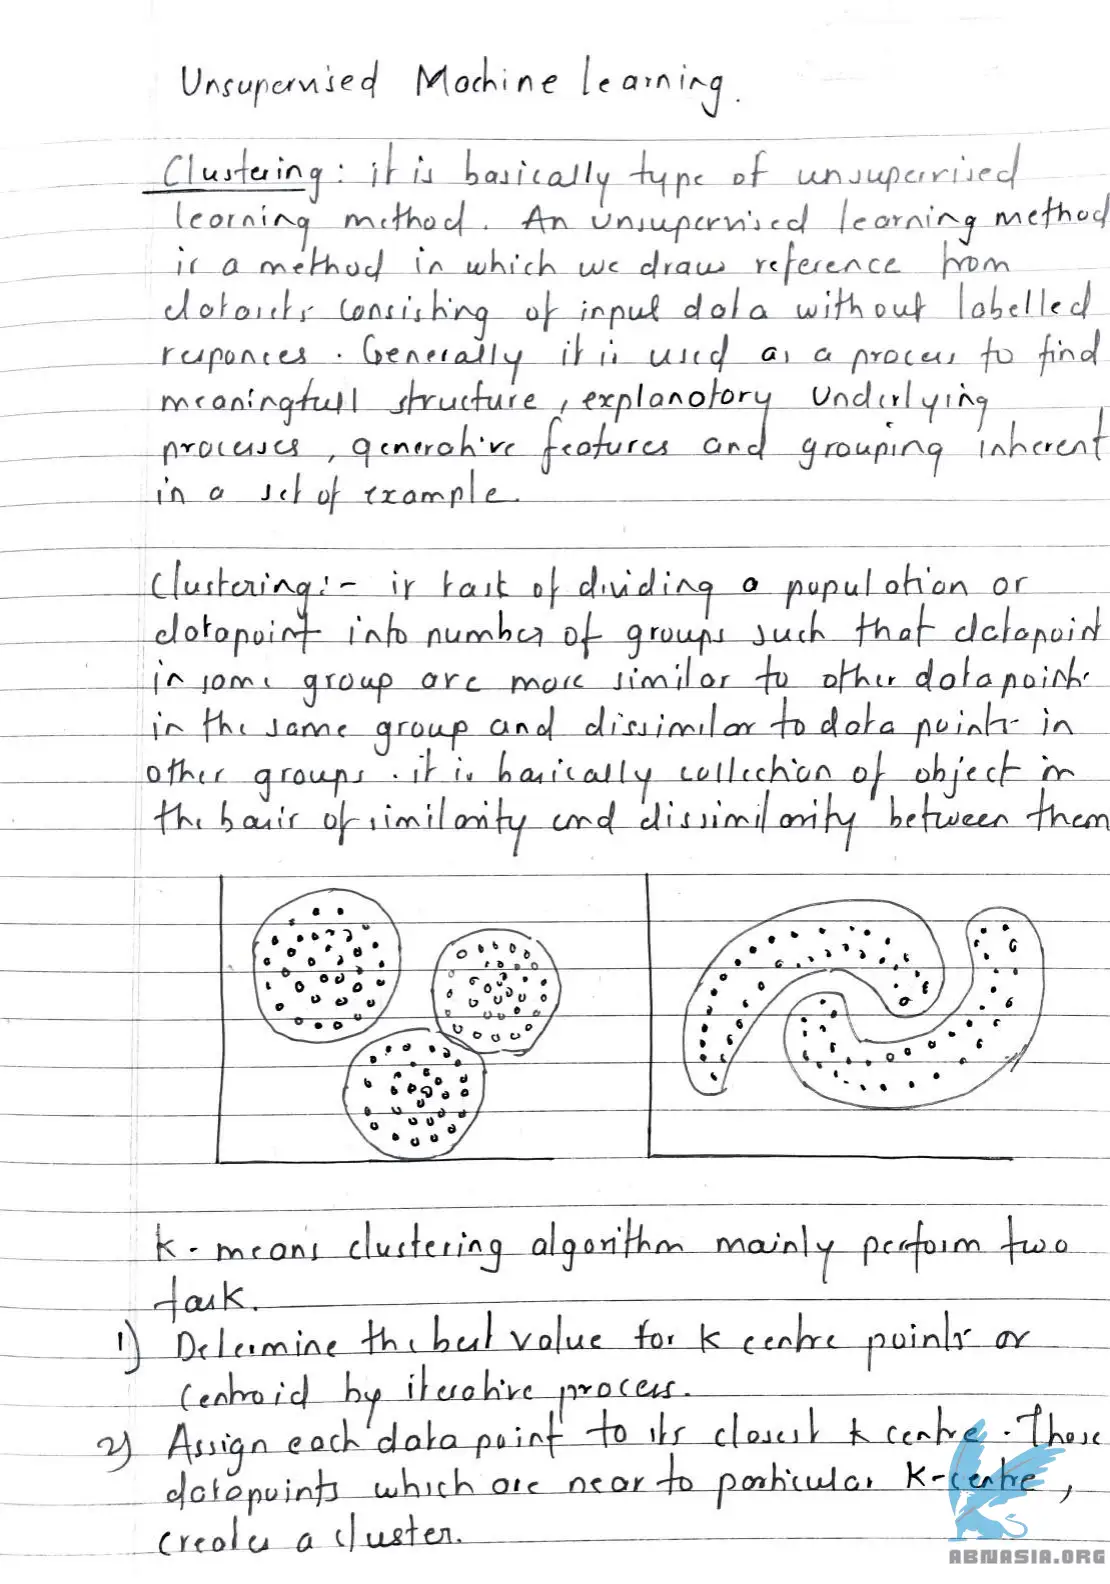 Unsupervised Machine learning.
Clustering: it is basically type of unsupervised
learning method. An unsupervised learning method
is a method in which we draw reference from
datasets consisting of input data without labelled
responces. Generally it is used as a process to find
meaningfull structure, explanatory underlying
processes, generative features and grouping inherent
in a set of example.
Clustering:- is task of dividing a population or
datapoint into number of groups such that datapoint
in same group are more similar to other datapoints
in the same group and dissimilar to data points in
other groups. it is basically collection of object in
the basis of similarity and dissimilarity between them
K-means clustering algorithm mainly perform two
task.
1) Determine the best value for K centre points or
centroid by iterative process.
2) Assign each data point to its closest k centre. Those
datapoints which are near to particular K-centre,
creates a cluster.
ABNASIA.ORG